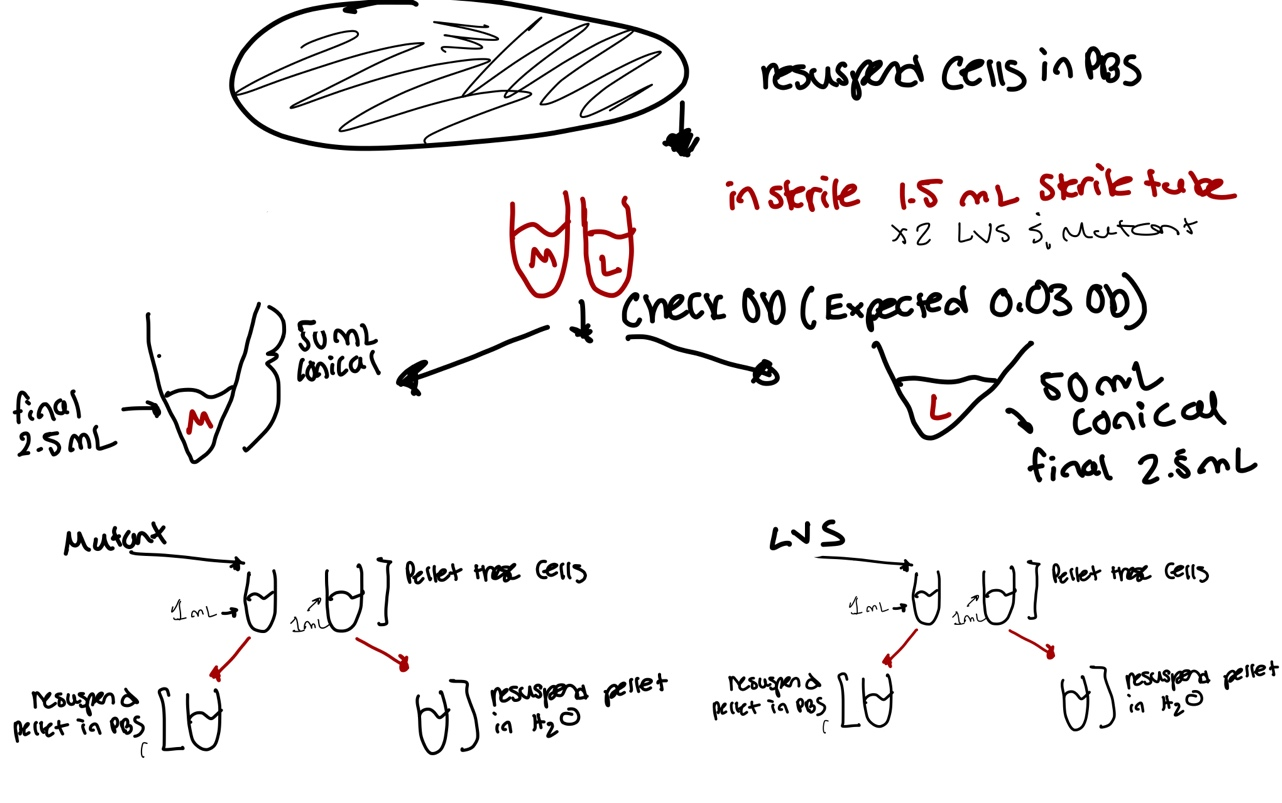 resuspend cells in PBS
in sterile 1.5 mL sterile tube
x2 LVS & Mutant
M L
Check OD (Expected 0.03 OD)
50 mL
conical
final
2.5 mL
M
L
50 mL
conical
final 2.5 mL
Mutant
1 mL
1 mL
Pellet these cells
resuspend
pellet in PBS
resuspend pellet
in H2O
LVS
1 mL
1 mL
Pellet these cells
resuspend
pellet in PBS
resuspend pellet
in H2O